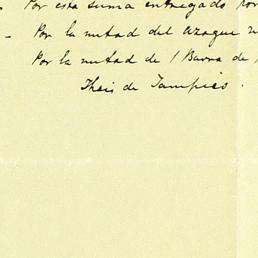 Por esta suma entregado por
Por la mitad del azogue
Por la mitad de 1 Barra de
Theis de Tampico.